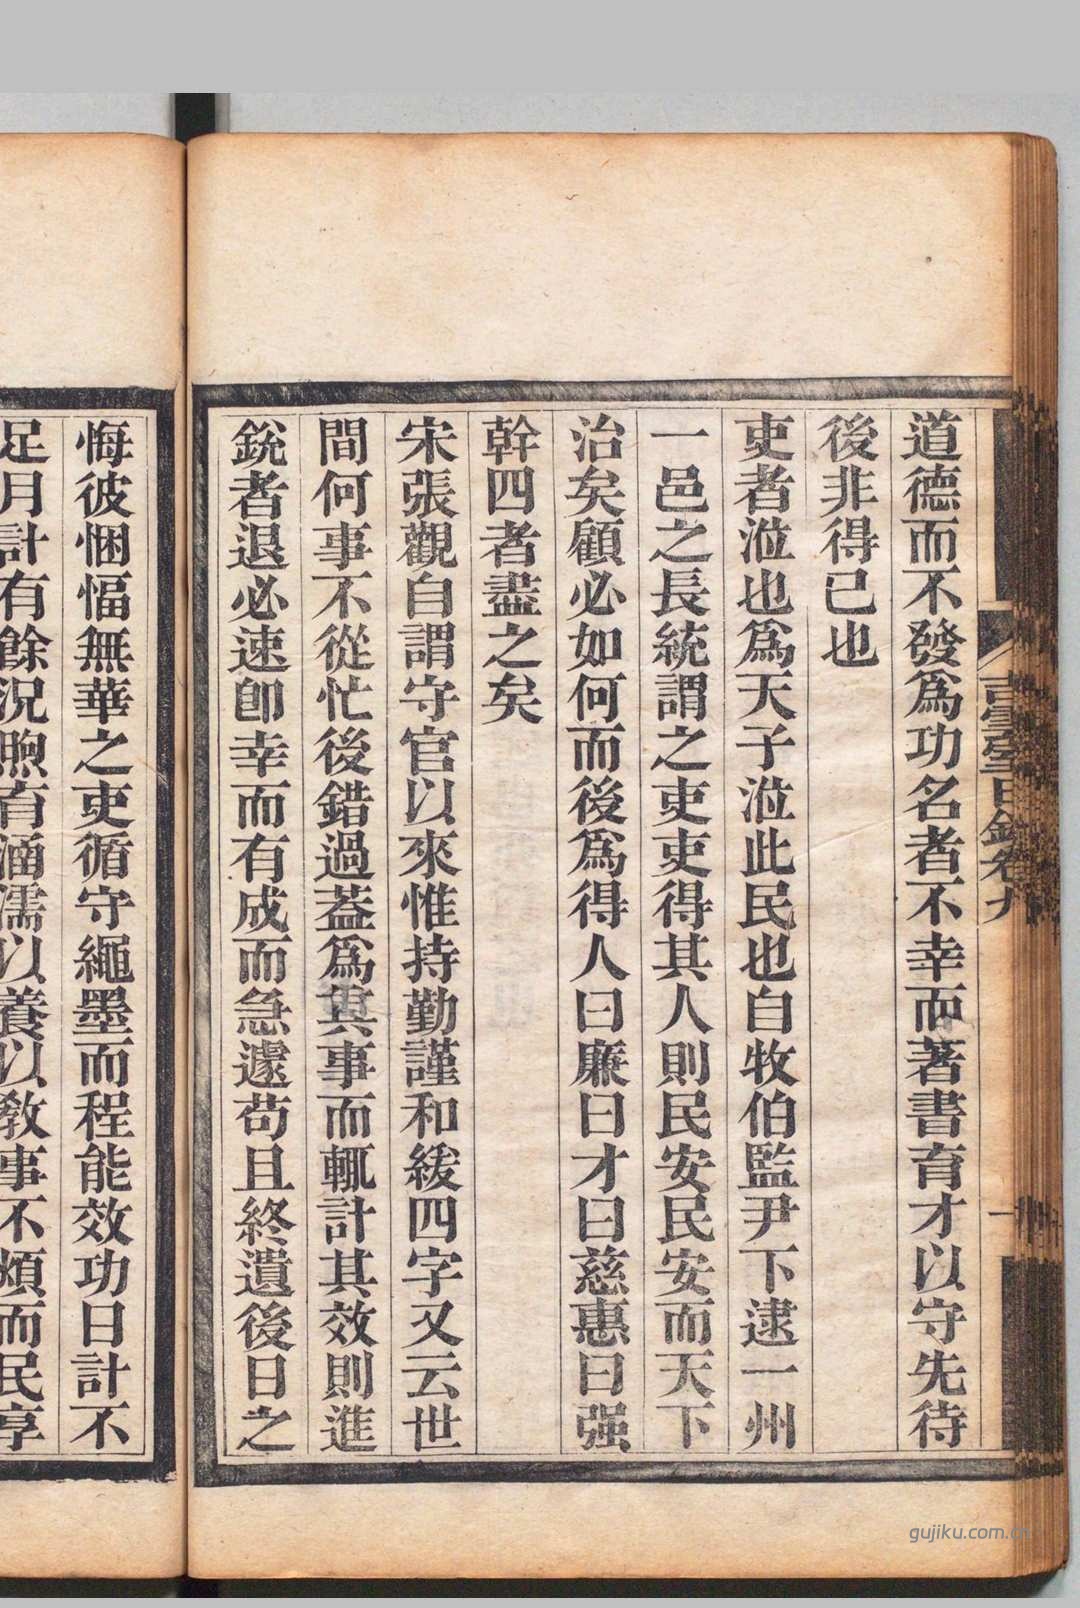 道德而不發爲功名者不幸而著書育才以守先待
後非得已也
吏者涖也爲天子涖此民也自牧伯監尹下逮一州
一邑之長統謂之吏吏得其人則民安民安而天下
治矣顧必如何而後爲得人曰廉曰才曰慈惠曰强
幹四者盡之矣
宋張觀自謂守官以來惟持勤謹和緩四字又云世
間何事不從忙後錯過蓋爲其事而輒計其效則進
銳者退必速卽幸而有成而急遽苟且終遺後日之
悔彼悃愊無華之吏循守繩墨而程能效功日計不
足月計有餘況煦育涵濡以養以敎事不煩而民享
卷九
gujiku.com.cn